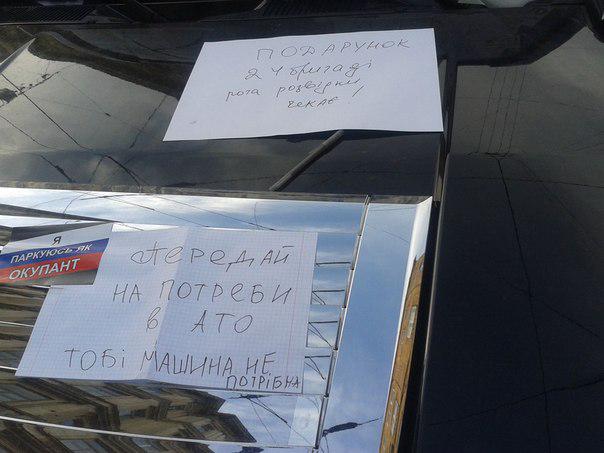 ПОДАРУНОК
24 бригаді
рота розвідки
чекає!
Я
ПАРКУЮСЬ ЯК
ОКУПАНТ
ПЕРЕДАЙ
НА ПОТРЕБИ
В АТО
ТОБІ МАШИНА НЕ
ПОТРІБНА